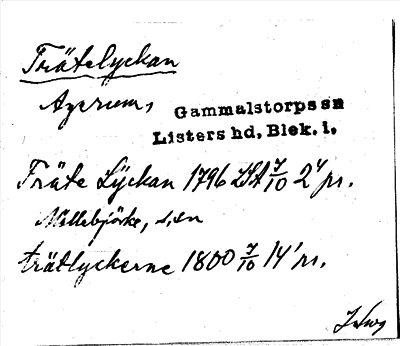 Trätelyckan
Agerum,
Gammalstorps sn
Listers hd, Blek. l.
Träte Lyckan 1796 LSA 7/10 2' pr.
Mellebjörke, s.sn
trätlyckerne 1800 7/10 14' pr.